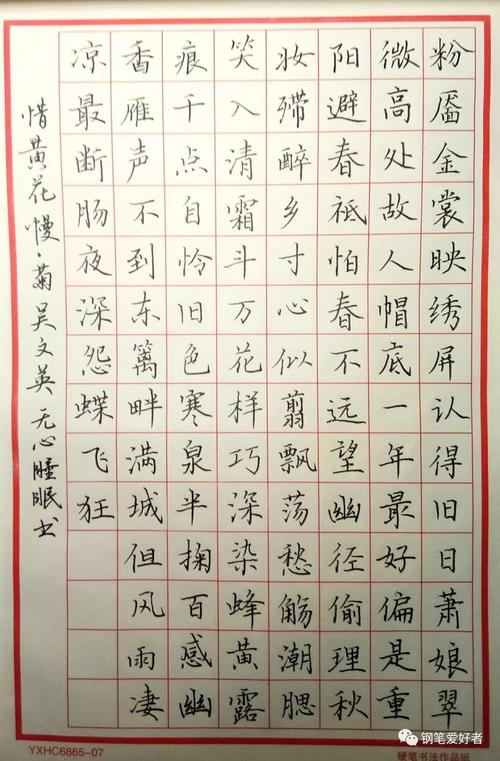 粉靥金裳映绣屏认得旧日萧娘翠
微高处故人帽底一年最好偏是重
阳避春祗怕春不远望幽径偷理秋
妆殢醉乡寸心似翦飘荡愁觞潮腮
笑入清霜斗万花样巧深染蜂黄露
痕千点自怜旧色寒泉半掬百感幽
香雁声不到东篱畔满城但风雨凄
凉最断肠夜深怨蝶飞狂
惜黄花慢·菊 吴文英 无心睡眠书
YXHC6865-07
硬笔书法作品纸
钢笔爱好者